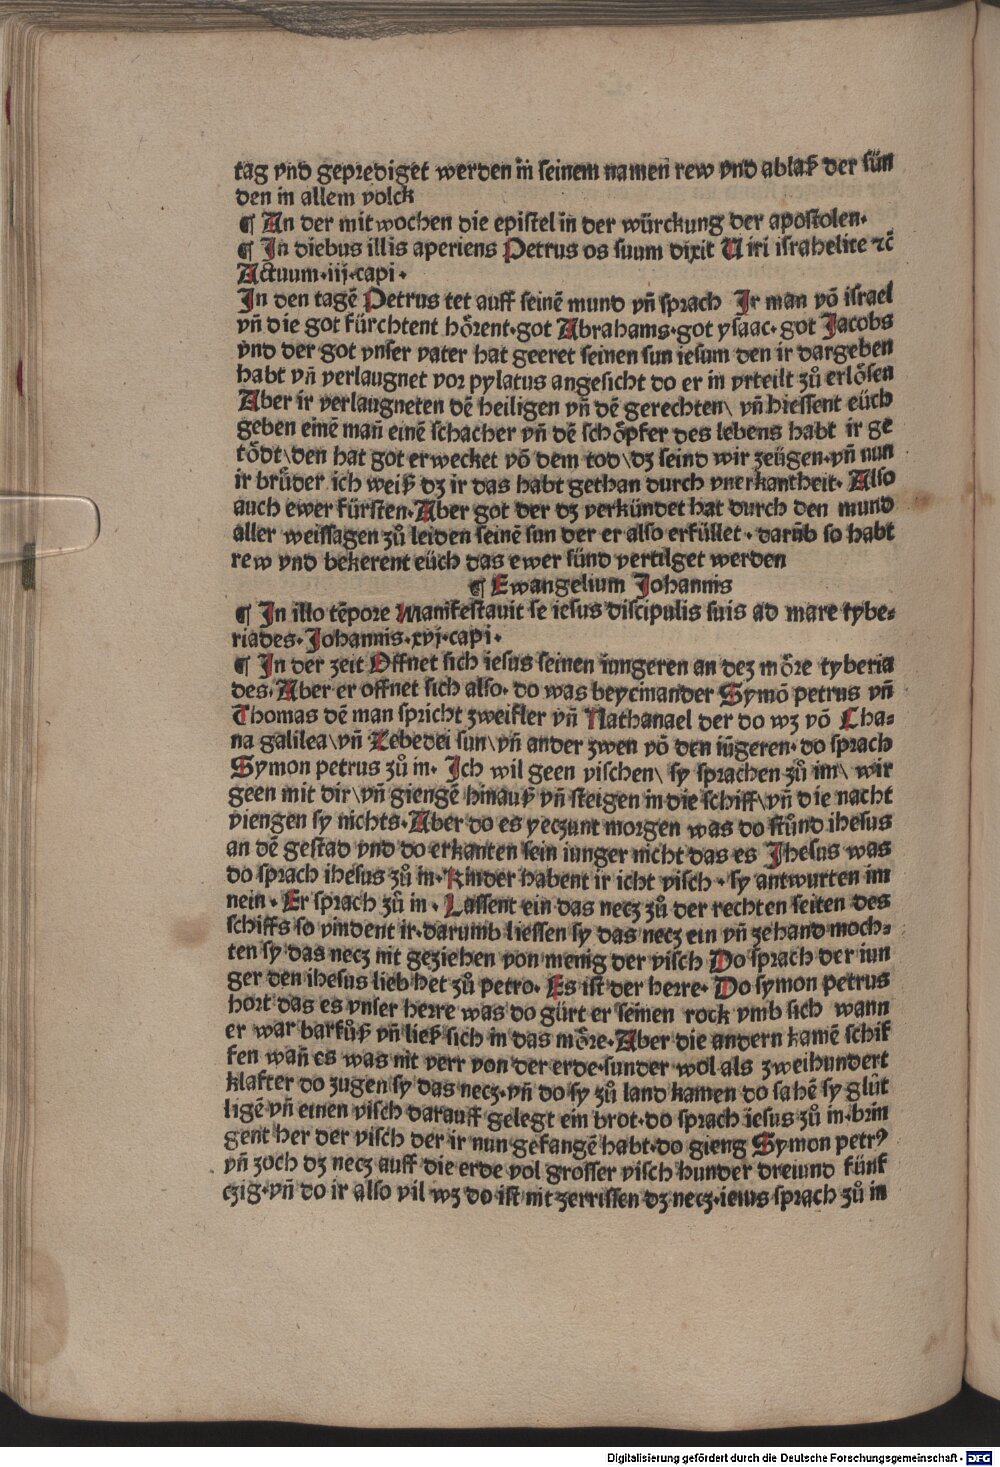 tag vnd geprediget werden in seinem namen rew vnd ablaß der sün
den in allem volck
¶ An der mitwochen die epistel in der würckung der apostolen.
¶ In diebus illis aperiens Petrus os suum dixit Uiri israhelite ⁊c̄
Actuum·iij·capi·
In den tagē Petrus tet auff seinē mund vn̄ sprach Ir man vō israel
vn̄ die got fürchtent hörent·got Abrahams·got ysaac·got Jacobs
vnd der got vnser vater hat geeret seinen sun iesum den ir dargeben
habt vn̄ verlaugnet vor pylatus angesicht do er in vrteilt zů erlösen
Aber ir verlaugneten dē heiligen vn̄ dē gerechten\ vn̄ hiessent eüch
geben einē man̄ einē schacher vn̄ dē schöpfer des lebens habt ir ge
tödt\den hat got erwecket vō dem tod\dz seind wir zeügen·vn̄ nun
ir brůder ich weiß dz ir das habt gethan durch vnerkantheit· Also
auch ewer fürsten·Aber got der dz verkündet hat durch den mund
aller weissagen zů leiden seinē sun der er also erfüllet·darūb so habt
rew vnd bekerent eüch das ewer sünd vertilget werden
¶ Ewangelium Johannis
¶ In illo tēpore Manifestauit se iesus discipulis suis ad mare tybe⸗
riades·Johannis·xvj·capi·
¶ In der zeit Offnet sich iesus seinen iungeren an dez möre tyberia
des·Aber er offnet sich also·do was beyeinander Symō petrus vn̄
Thomas dē man spricht zweifler vn̄ Nathanael der do wz vō Cha⸗
na galilea\vn̄ Zebedei sun\vn̄ ander zwen vō den iūgeren·do sprach
Symon petrus zů in· Ich wil geen vischen\ sy sprachen zů im\ wir
geen mit dir\vn̄ giengē hinauß vn̄ steigen in die schiff\vn̄ die nacht
viengen sy nichts·Aber do es yeczunt morgen was do stůnd ihesus
an dē gestad vnd do erkanten sein iunger nicht das es Jhesus was
do sprach ihesus zů in·Kinder habent ir icht visch·sy antwurten im
nein·Er sprach zů in·Lassent ein das necz zů der rechten seiten des
schiffs so vindent ir·darumb liessen sy das necz ein vn̄ zehand moch⸗
ten sy das necz nit geziehen von menig der visch Do sprach der iun
ger den ihesus lieb het zů petro· Es ist der herre· Do symon petrus
hort das es vnser herre was do gürt er seinen rock vmb sich wann
er war barfůß vn̄ ließ sich in das möre·Aber die andern kamē schif
fen wan̄ es was nit verr von der erde·sunder wol als zweihundert
klafter do zugen sy das necz·vn̄ do sy zů land kamen do sahē sy glůt
ligē vn̄ einen visch darauff gelegt ein brot·do sprach iesus zů in·brin
gent her der visch der ir nun gefangē habt·do gieng Symon petrꝰ
vn̄ zoch dz necz auff die erde vol grosser visch hunder dreiund fünf
czig·vn̄ do ir also vil wz do ist nit zerrissen dz necz·iesus sprach zů in
Digitalisierung gefördert durch die Deutsche Forschungsgemeinschaft - DFG